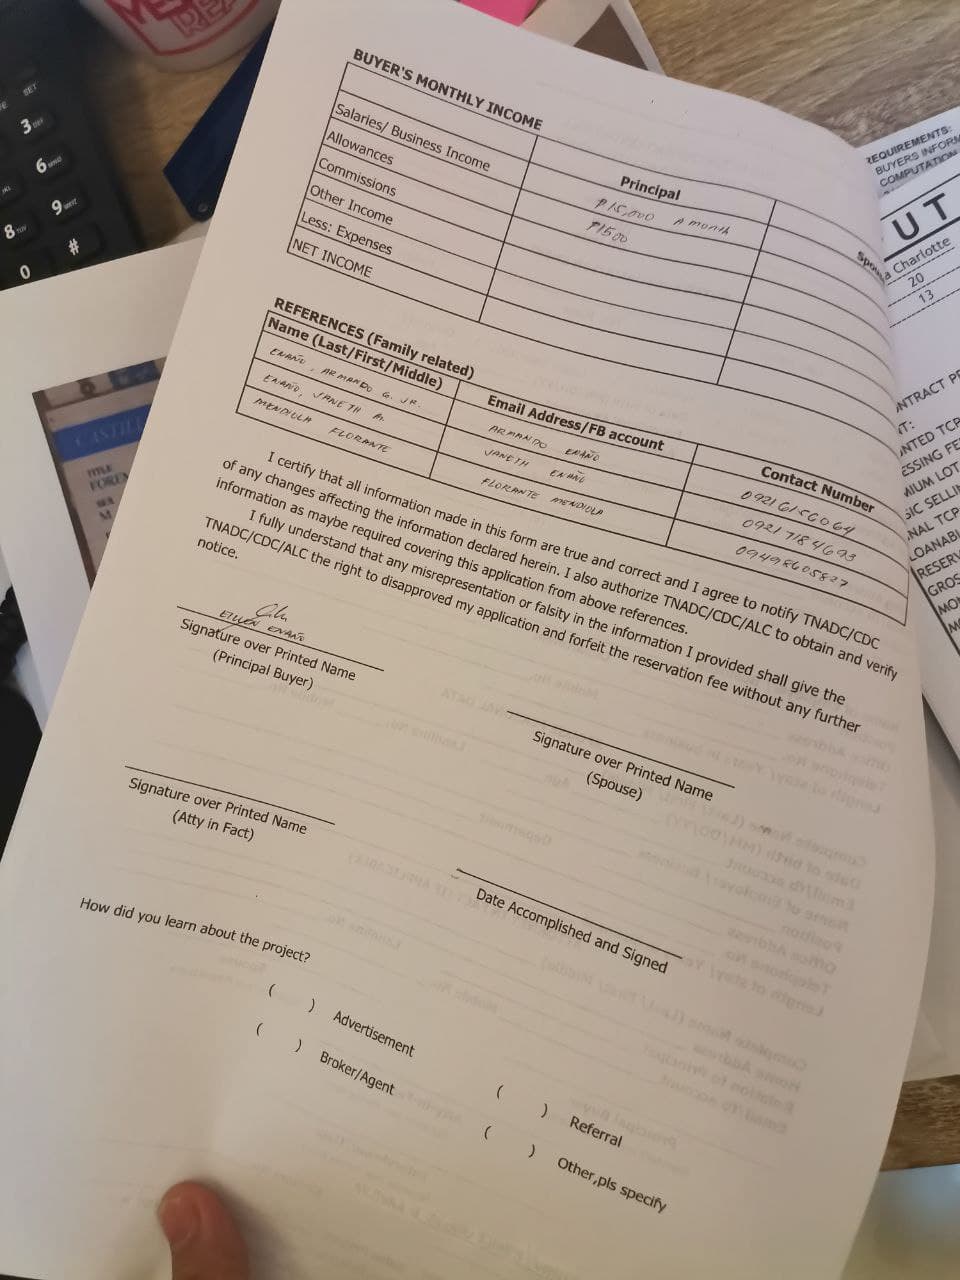 BUYER'S MONTHLY INCOME
Principal
Salaries/ Business Income ₱15,000 A MONTH
Allowances ₱1500
Commissions
Other Income
Less: Expenses
NET INCOME
REFERENCES (Family related)
Name (Last/First/Middle) Email Address/FB account Contact Number
ENAÑO, ARMANDO G. JR. ARMANDO ENAÑO 09216156064
ENAÑO, JANETH A. JANETH ENAÑO 09217184693
MENDIOLA FLORANTE FLORANTE MENDIOLA 09498605827
I certify that all information made in this form are true and correct and I agree to notify TNADC/CDC
of any changes affecting the information declared herein. I also authorize TNADC/CDC/ALC to obtain and verify
information as maybe required covering this application from above references.
I fully understand that any misrepresentation or falsity in the information I provided shall give the
TNADC/CDC/ALC the right to disapproved my application and forfeit the reservation fee without any further
notice.
ENAÑO
Signature over Printed Name
(Principal Buyer)
Signature over Printed Name
(Spouse)
Signature over Printed Name
(Atty in Fact)
Date Accomplished and Signed
How did you learn about the project?
( ) Advertisement
( ) Broker/Agent
( ) Referral
( ) Other,pls specify
REQUIREMENTS:
COMPUTATION
Charlotte
20
13
SET
3 DEF
6 MNO
9
8
0
#